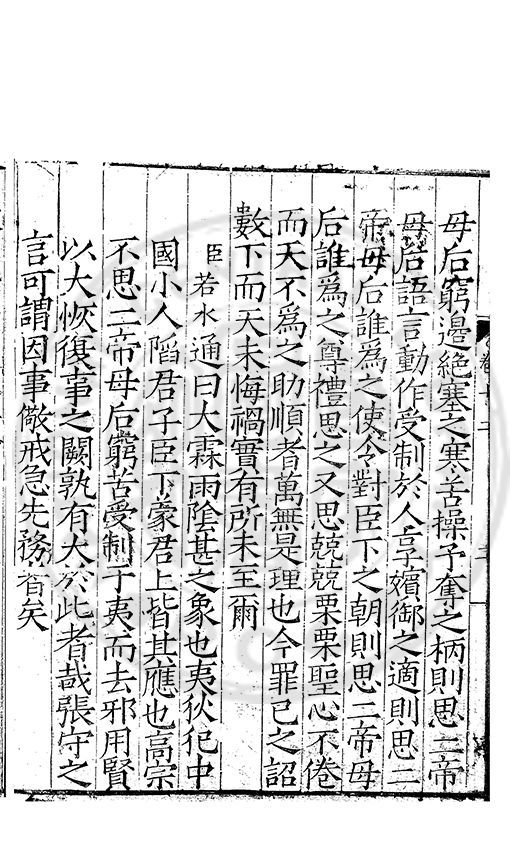 母后窮邊絕塞之寒苦操予奪之柄則思二帝
母后語言動作受制於人享嬪御之適則思二
帝母后誰為之使令對臣下之朝則思二帝母
后誰為之尊禮思之又思兢兢栗栗聖心不倦
而天不為之助順者萬無是理也今罪已之詔
數下而天未悔禍實有所未至爾
臣若水通曰大霖雨陰甚之象也夷狄犯中
國小人䧟君子臣下蒙君上皆其應也高宗
不思二帝母后窮苦受制于夷而去邪用賢
以大恢復事之闕孰有大於此者哉張守之
言可謂因事儆戒急先務者矣